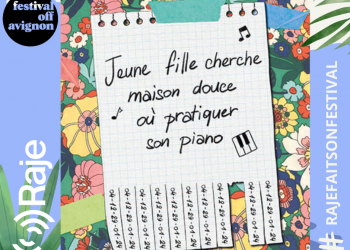 festival off
avignon
Raje
Jeune fille cherche
maison douce
où pratiquer
son piano
# RAJEFAITSONFESTIVAL